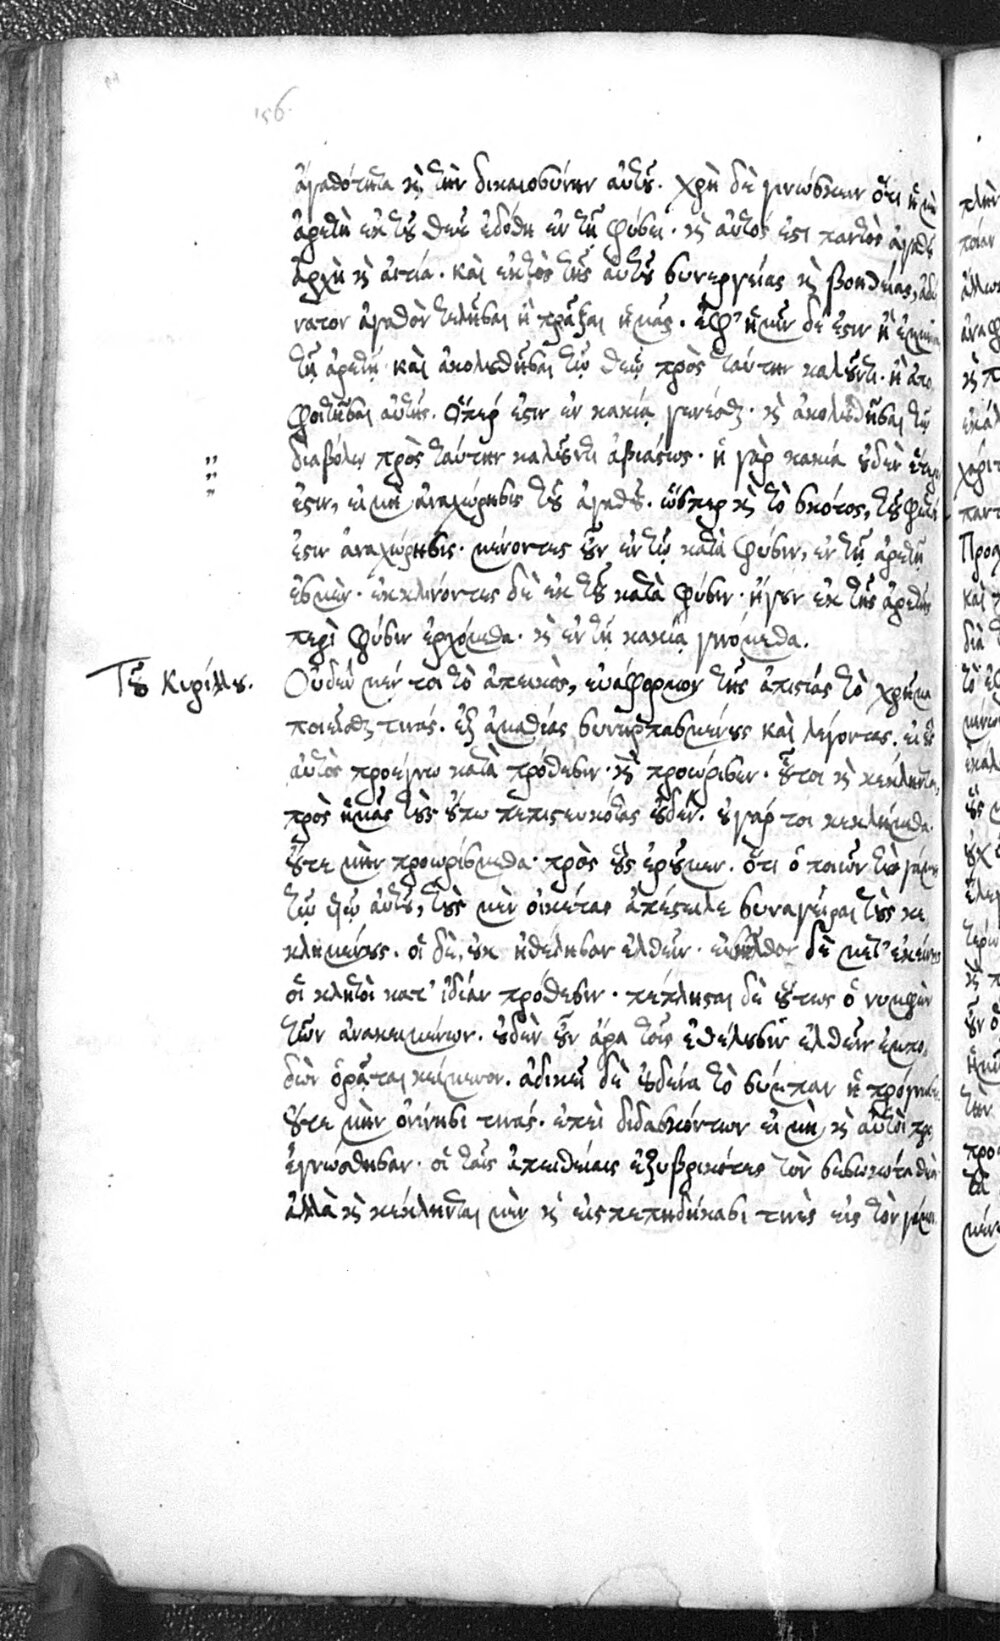 156
ἀγαθότητα κ̀ τὴν δικαιοσύνην αὐτοῦ. χρὴ δὲ γινώσκειν ὅτι ἡ μὲν
ἀρετὴ ἐκ τοῦ θεοῦ ἐδόθη ἐν τῇ φύσει· κ̀ αὐτός ἐστι παντὸς ἀγαθοῦ
ἀρχὴ κ̀ αἰτία. καὶ ἐκτὸς τῆς αὐτοῦ συνεργείας κ̀ βοηθείας, ἀδύ
νατον ἀγαθὸν θελῆσαι ἢ πρᾶξαι ἡμᾶς. ἐφ' ἡμῖν δέ ἐστιν ἢ ἐμμεῖναι
τῇ ἀρετῇ καὶ ἀκολουθῆσαι τῷ θεῷ πρὸς ταύτην καλοῦντι· ἢ ἀπο
φοιτῆσαι αὐτῆς. ὅπερ ἐστιν ἐν κακίᾳ γενέσθαι κ̀ ἀκολουθῆσαι τῷ
διαβόλῳ πρὸς ταύτην καλοῦντι ἀβιάστως. ἡ γὰρ κακία οὐδὲν ἕτερόν
ἐστιν, εἰ μὴ ἀναχώρησις τοῦ ἀγαθοῦ. ὥσπερ κ̀ τὸ σκότος, τοῦ φωτός
ἐστιν ἀναχώρησις. μένοντες οὖν ἐν τῷ κατὰ φύσιν, ἐν τῇ ἀρετῇ
ἐσμέν. ἐκκλίνοντες δὲ ἐκ τοῦ κατὰ φύσιν· ἤγουν ἐκ τῆς ἀρετῆς
περὶ φύσιν ἐρχόμεθα. κ̀ ἐν τῇ κακίᾳ γινόμεθα.
Τοῦ Κυρίλλου. Οὐδὲν μέν τοι τὸ ἀπεικὸς, εὐαφόρμον τῆς ἀπιστίας τὸ χρῆμα
ποιεῖσθαι τινάς. ἐξ ἀμαθίας συνηρπασμένους καὶ λέγοντας. εἰ οὓς
αὐτὸς προέγνω κατὰ πρόθεσιν κ̀ προώρισεν. οὗτοι κ̀ κέκληνται,
πρὸς ἡμᾶς τοὺς οὔπω πεπιστευκότας οὐδέν. οὐ γάρ τοι κεκλήμεθα.
οὔτε μὴν προωρίσμεθα· πρὸς οὓς ἐροῦμεν. ὅτι ὁ ποιῶν τοὺς γάμους
τῷ υἱῷ αὐτοῦ, τοὺς μὲν οἰκέτας ἀπέστειλε συναγεῖραι τοὺς κε
κλημένους. οἱ δὲ, οὐκ ἠθέλησαν ἐλθεῖν. εἰσῆλθον δὲ μετ' ἐκείνους
οἱ κλητοὶ κατ' ἰδίαν πρόθεσιν. πέπλησται δὲ οὕτως ὁ νυμφὼν
τῶν ἀνακειμένων. οὐδὲν οὖν ἄρα τοῖς ἐθέλουσιν ἐλθεῖν ἐμπο
δὼν ὁρᾶται κείμενον. ἀδικεῖ δὲ οὐδένα τὸ σύμπαν ἡ πρόγνωσις.
οὔτε μὴν ὀνίνησι τινάς. ἐπεὶ διδασκόντων εἰ μὴ κ̀ αὐτοὶ προ
εγνώσθησαν. οἱ ταῖς ἀπειθείαις ἐξυβρικότες τὸν σεσωκότα θεόν
ἀλλὰ κ̀ κέκληνται μὲν κ̀ εἰσπεπηδήκασι τινὲς εἰς τὸν γάμον